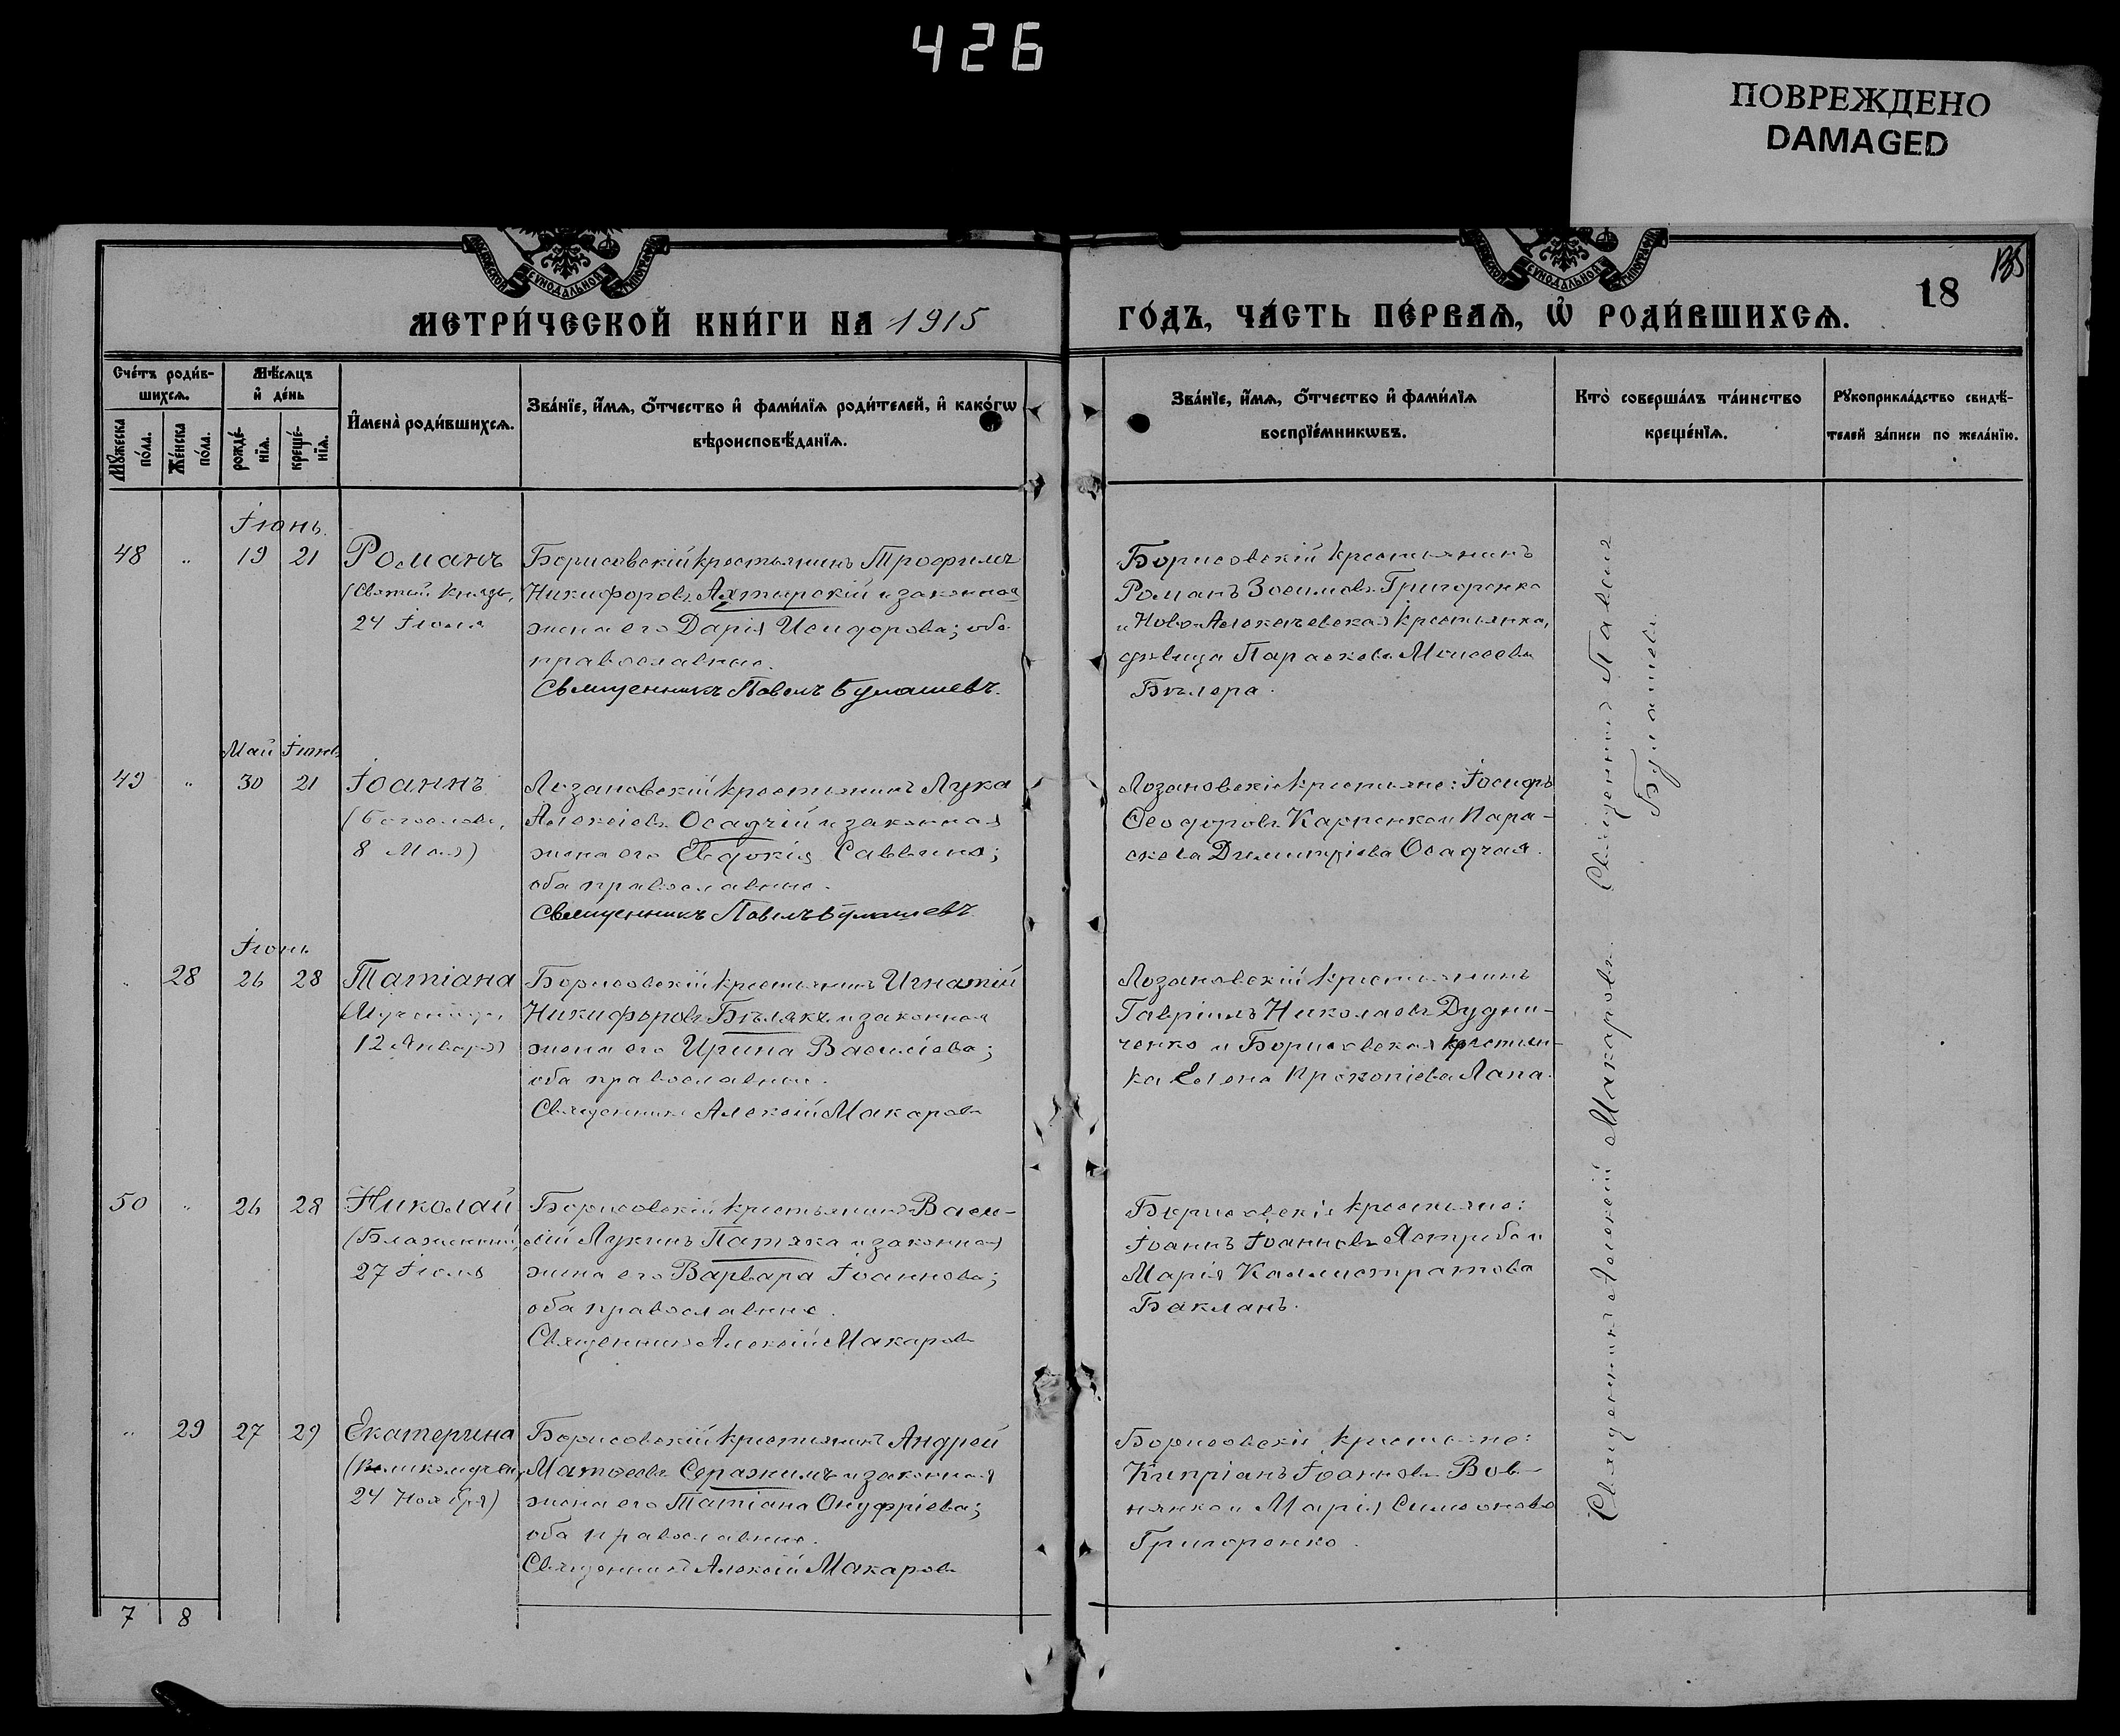 426
ПОВРЕЖДЕНО
DAMAGED
МЕТРИ́ЧЕСКОЙ КНИ́ГИ НА 1915
ГО́ДЪ, ЧА́СТЬ ПЕ́РВАѦ, Ѡ҆ РОДИ́ВШИХСѦ.
18
Сче́тъ роди́в-
шихсѧ.
Мꙋ́жеска по́ла.
Же́нска по́ла.
Мѣ́сѧцъ
и҆ де́нь
рожде́-
нїѧ.
креще́-
нїѧ.
И҆мена̀ роди́вшихсѧ.
Зва́нїе, и҆́мѧ, ѻ҆́тчество и҆ фами́лїѧ роди́телей, и҆ како́гѡ
вѣроисповѣ́данїѧ.
Зва́нїе, и҆́мѧ, ѻ҆́тчество и҆ фами́лїѧ
воспрїе́мникѡвъ.
Кто̀ соверша́лъ та́инство
креще́нїѧ.
Рꙋкоприкла́дство свидѣ́-
телей за́писи по жела́нїю.
Іюнь.
48 " 19 21 Романъ
(Святой Князь,
24 Іюля
Борисовскій крестьянинъ Трофимъ
Никифоровъ Ахтырскій и законная
жена его Дарія Исидорова; оба
православные.
Священникъ Павелъ Булашевъ.
Борисовскій крестьянинъ
Романъ Зосимовъ Григоренко
и Ново-Алексѣевская крестьянка,
дѣвица Параскева Моисеева
Бѣлера.
Май Іюнь
49 " 30 21 Іоаннъ
(Богословъ,
8 Мая)
Лозановскій крестьянинъ Лука
Алексіевъ Осадчій и законная
жена его Евдокія Саввина;
оба православные.
Священникъ Павелъ Булашевъ
Лозановскіе крестьяне: Іосифъ
Ѳеодоровъ Карпенко и Пара-
скева Димитріева Осадчая.
Священникъ Павелъ
Булашевъ
Іюнь
" 28 26 28 Татіана
(Мученица,
12 Января)
Борисовскій крестьянинъ Игнатій
Никифоровъ Бѣлякъ и законная
жена его Ирина Васильева;
оба православные.
Священникъ Алексій Макаровъ
Лозановскій крестьянинъ
Гавріилъ Николаевъ Дудни-
ченко и Борисовская крестьян-
ка Елена Прокопіева Лапа.
50 " 26 28 Николай
(Блаженный,
27 Іюля
Борисовскій крестьянинъ Васи-
лій Лукинъ Патяка и законная
жена его Варвара Іоаннова;
оба православные.
Священникъ Алексій Макаровъ
Борисовскіе крестьяне:
Іоаннъ Іоанновъ Ястребъ и
Марія Каллистратова
Бакланъ.
" 29 27 29 Екатерина
(Великомучен,
24 Ноября)
Борисовскій крестьянинъ Андрей
Матѳеевъ Серажимъ и законная
жена его Татіана Онуфріева;
оба православные.
Священникъ Алексій Макаровъ
Борисовскіе крестьяне:
Кипріанъ Іоанновъ Вов-
нянко и Марія Симеонова
Григоренко.
Священникъ Алексій Макаровъ
7 8